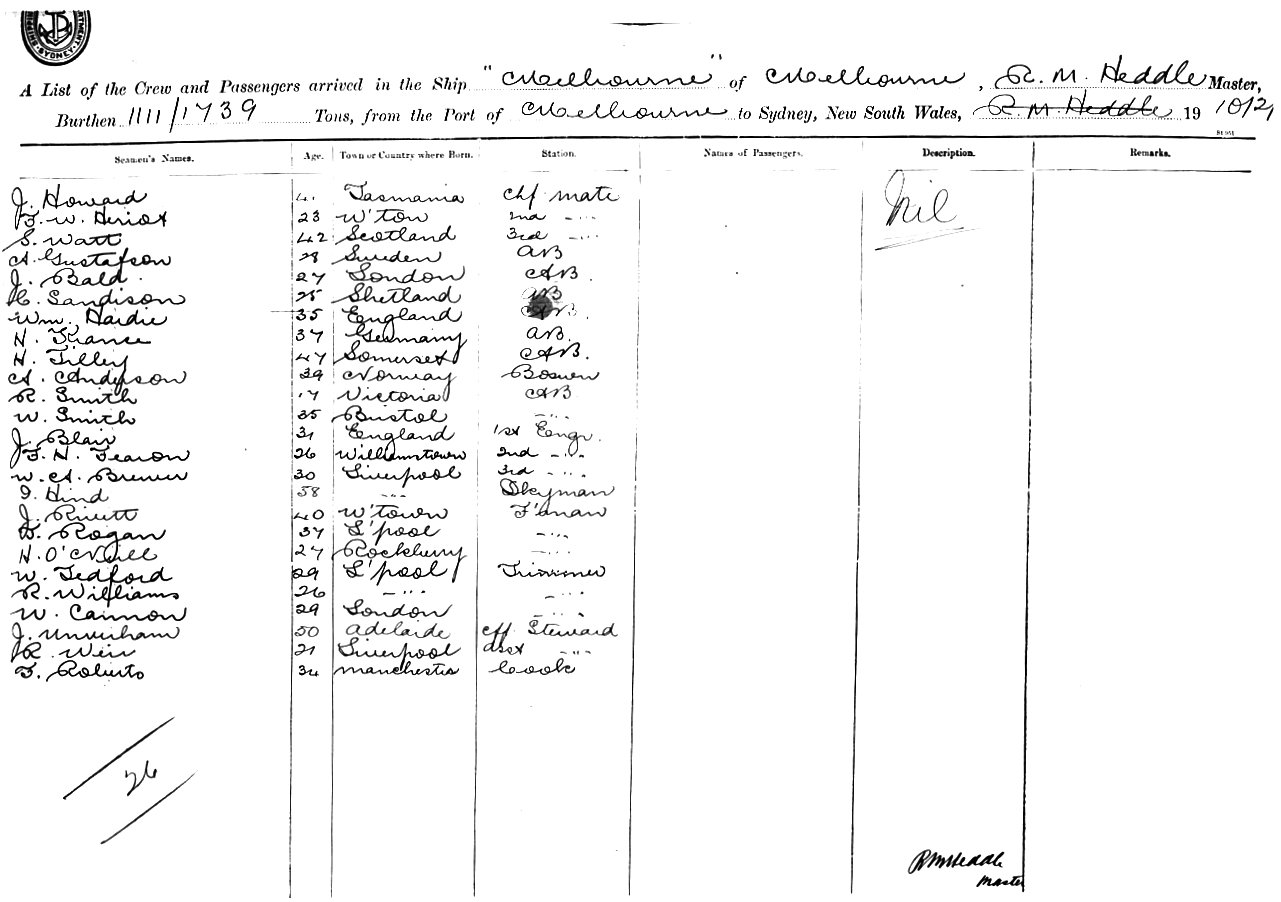 SYDNEY
A List of the Crew and Passengers arrived in the Ship "Melbourne" of Melbourne, R. M. Heddle Master,
Burthen 1111/1739 Tons, from the Port of Melbourne to Sydney, New South Wales, R. M. Heddle 19
Seamen's Names. Age. Town or Country where Born. Station. Names of Passengers. Description. Remarks.
J. Howard Tasmania Chf mate Nil
F. W. Heriot 23 W'ton 2nd -..-
S. Watt 42 Scotland 3rd -..-
A. Gustafson 28 Sweden AB
J. Bald 27 London AB.
C. Sandison 25 Shetland AB
Wm. Hardie 35 England AB.
H. Franse 37 Germany AB.
H. Tilley 47 Somerset AB.
A. Anderson 39 Norway Bosun
R. Smith 17 Victoria AB
W. Smith 35 Bristol -..-
J. Blair 31 England 1st Eengr.
F. H. Fearon 26 Williamstown 2nd -..-
W. A. Brewer 30 Liverpool 3rd -..-
I. Hind 58 -..- Dkyman
J. Rivett 40 W'town F'man
D. Rogan 37 L'pool -..-
H. O'Neill 27 Rockberry -..-
W. Tedford 29 L'pool Trimmer
R. Williams 26 -..- -..-
W. Cannon 29 London -..-
J. 50 Adelaide Cff. Steward
R. Weir 21 Liverpool Asst -..-
F. Roberts 34 Manchester Cook
26
R M Heddle
Master